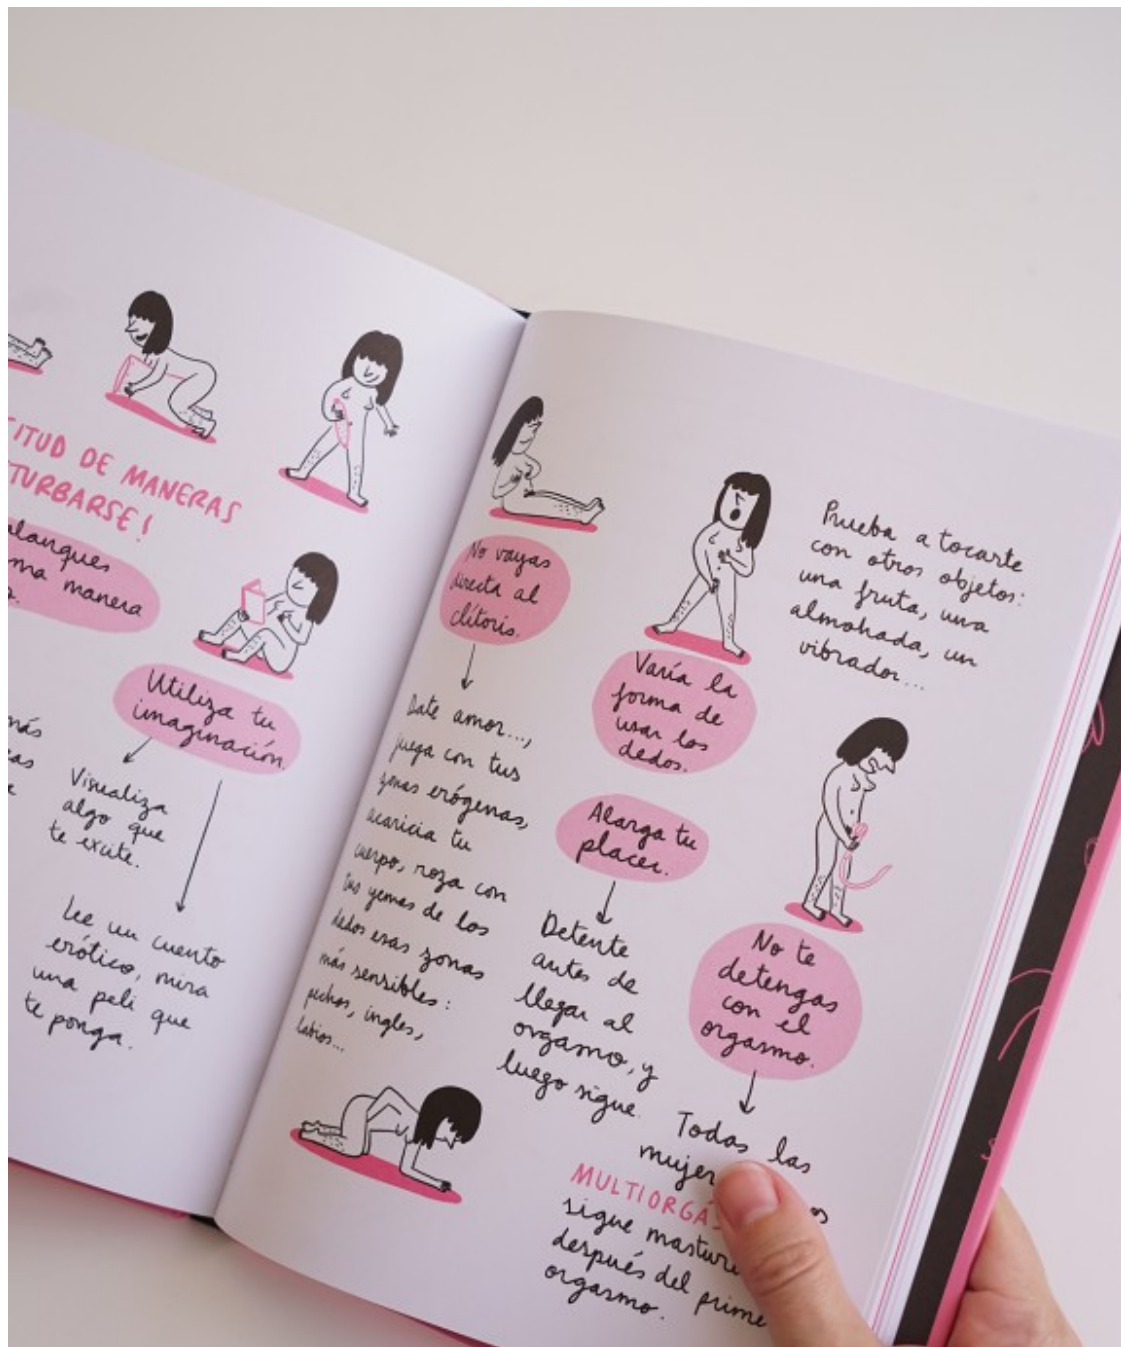 ITUD DE MANERAS
TURBARSE!
manera
Utiliza tu
imaginación.
más
Visualiza
algo que
te excite.
Lee un cuento
erótico, mira
una peli que
te ponga.
No vayas
directa al
clítoris.
Date amor...,
juega con tus
zonas erógenas,
acaricia tu
cuerpo, roza con
las yemas de los
dedos esas zonas
más sensibles:
pechos, ingles,
labios...
Varía la
forma de
usar los
dedos.
Alarga tu
placer.
Detente
antes de
llegar al
orgasmo, y
luego sigue.
Prueba a tocarte
con otros objetos:
una fruta, una
almohada, un
vibrador...
No te
detengas
con el
orgasmo.
Todas las
mujer
MULTIORGÁ
sigue mastur
después del prime
orgasmo.